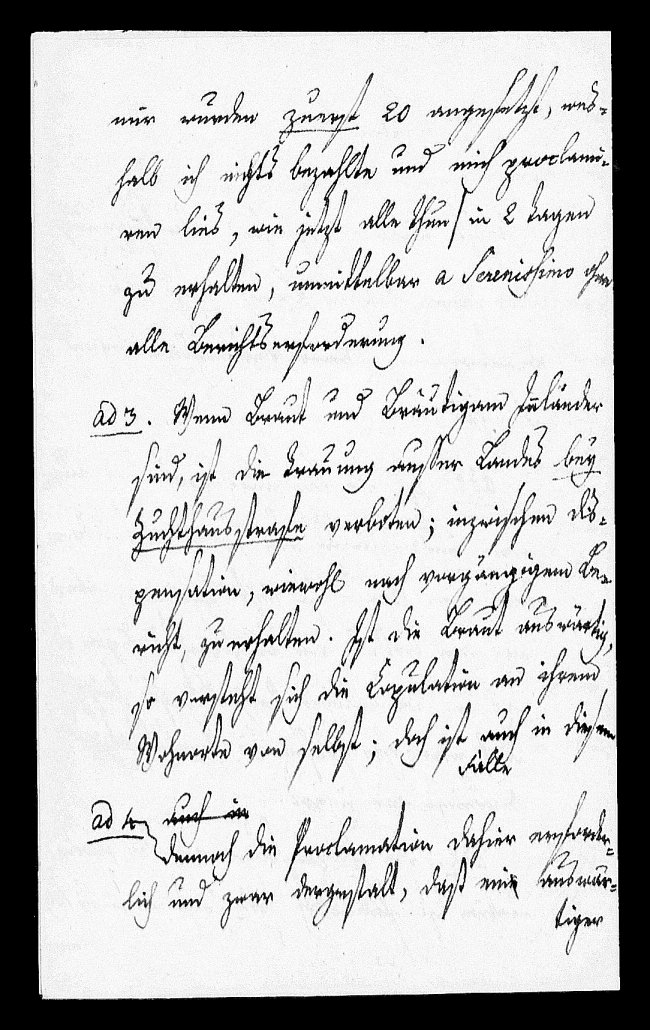 mir wurden zuerst 20 angesetzt, wes-
halb ich nichts bezahlte und mich proclami-
ren lies, wie jetzt alle thun / in 2 Tagen
zu erhalten, unmittelbar a Serenissimo ohne
alle Berichtserforderung.
ad 3. Wenn Braut und Bräutigam Inländer
sind, ist die Trauung ausser Landes bey
Zuchthausstrafe verboten; inzwischen Dis-
pensation, wiewohl nach vorgängigem Be-
richt, zu erhalten. Ist die Braut auswärtig,
so versteht sich die Copulation an ihrem
Wohnorte von selbst; doch ist auch in diesem
Falle
ad 4 auch in
dennoch die Proclamation dahier erforder-
lich und zwar dergestalt, daß ein auswär-
tiger